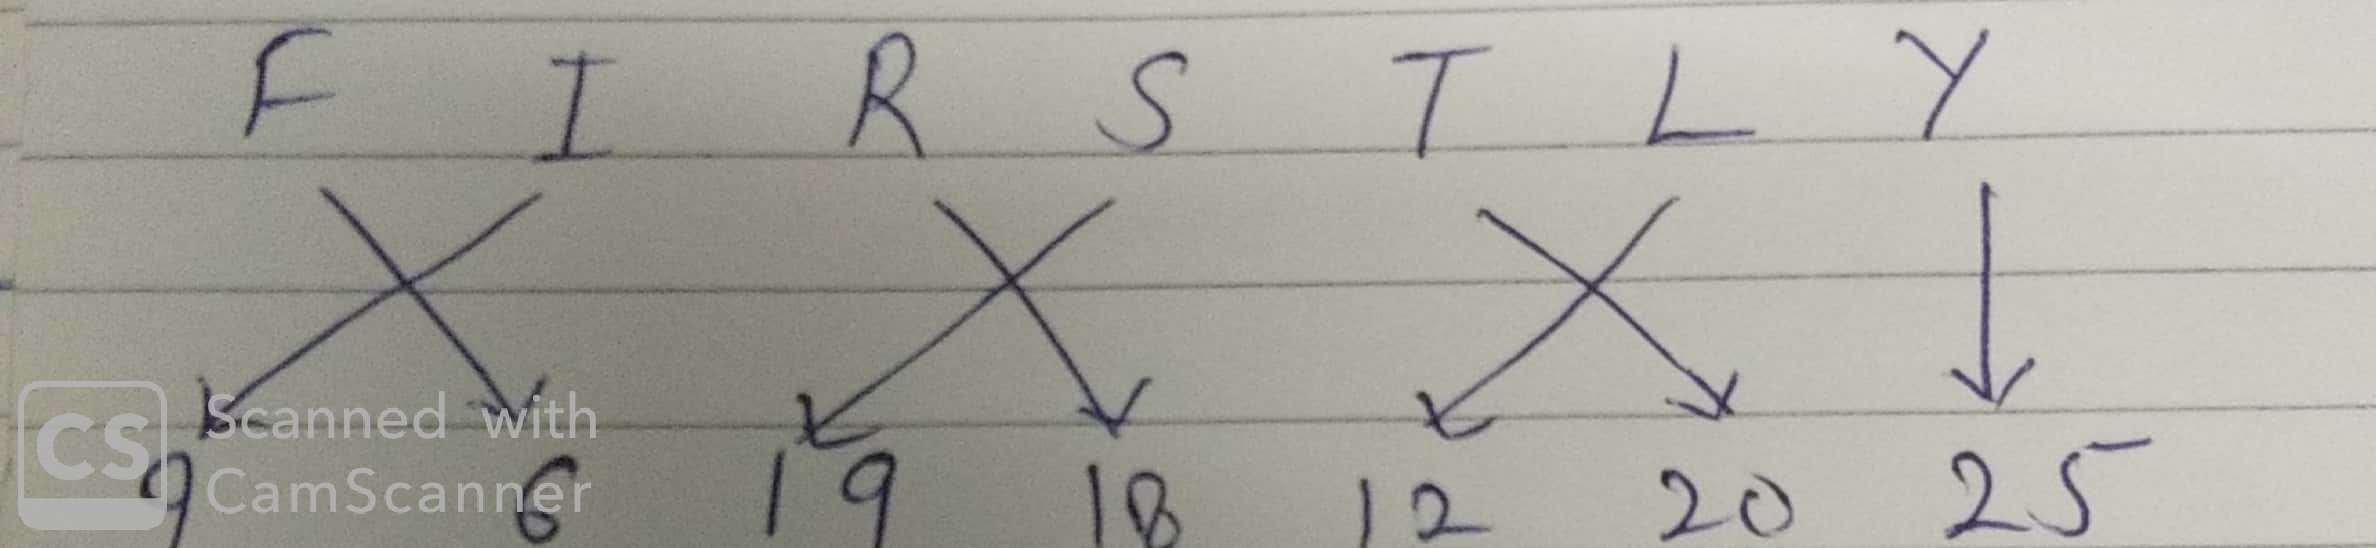 F I R S T L Y
CS Scanned with
CamScanner
9 6 19 18 12 20 25